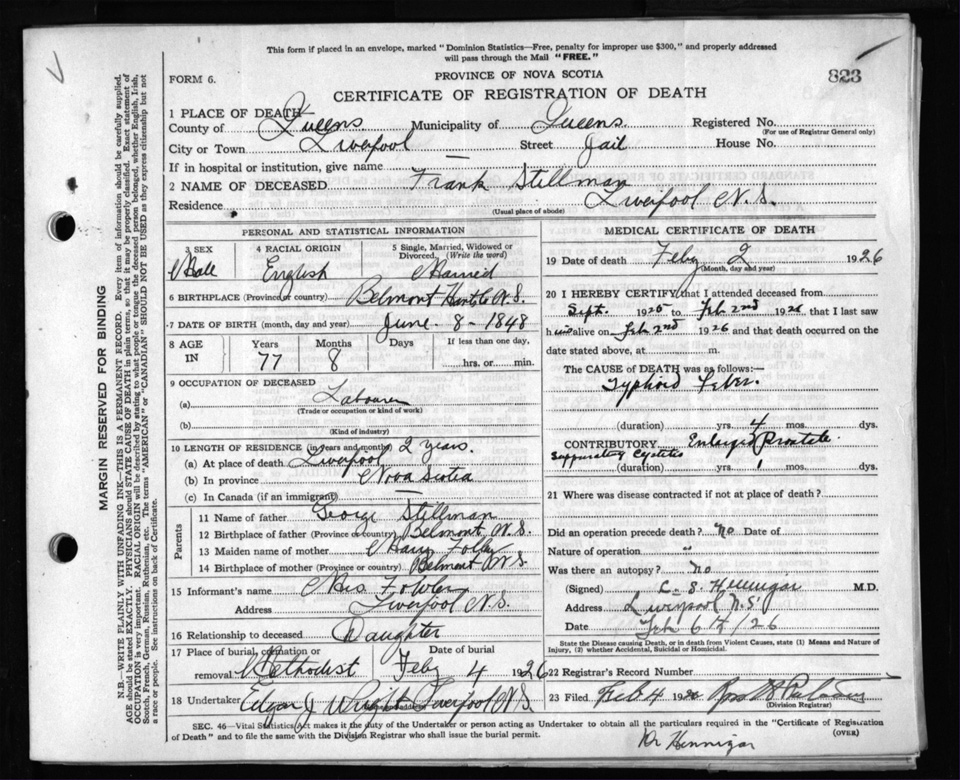 This form if placed in an envelope, marked "Dominion Statistics—Free, penalty for improper use $300," and properly addressed
will pass through the Mail "FREE."
FORM 6.
PROVINCE OF NOVA SCOTIA
823
CERTIFICATE OF REGISTRATION OF DEATH
1 PLACE OF DEATH—
County of Queens Municipality of Queens Registered No.
(For use of Registrar General only)
City or Town Liverpool Street Jail House No.
If in hospital or institution, give name —
2 NAME OF DECEASED Frank Stillman
Residence Liverpool N.S.
(Usual place of abode)
PERSONAL AND STATISTICAL INFORMATION
3 SEX 4 RACIAL ORIGIN 5 Single, Married, Widowed or
Divorced (Write the word)
Male English Married
6 BIRTHPLACE (Province or country) Belmont Hants N.S.
7 DATE OF BIRTH (month, day and year) June - 8 - 1848
8 AGE IN Years Months Days If less than one day,
77 8 hrs. or min.
9 OCCUPATION OF DECEASED
(a) Labourer
(Trade or occupation or kind of work)
(b)
(Kind of industry)
10 LENGTH OF RESIDENCE (in years and months) 2 years.
(a) At place of death Liverpool
(b) In province Nova Scotia
(c) In Canada (if an immigrant) —
Parents
11 Name of father George Stillman
12 Birthplace of father (Province or country) Belmont N.S.
13 Maiden name of mother Mary
14 Birthplace of mother (Province or country) Belmont N.S.
15 Informant's name Mrs Fowler
Address Liverpool N.S.
16 Relationship to deceased Daughter
17 Place of burial, cremation or Date of burial
removal Methodist Feby 4 1926
18 Undertaker Edgar J Wright Liverpool N.S.
MEDICAL CERTIFICATE OF DEATH
19 Date of death Feby 2 1926
(Month, day and year)
20 I HEREBY CERTIFY that I attended deceased from
Sept. 1925 to Feb 2nd 1926 that I last saw
him alive on Feb 2nd 1926 and that death occurred on the
date stated above, at m.
The CAUSE OF DEATH was as follows:—
Typhoid Fever.
(duration) yrs. 4 mos. dys.
CONTRIBUTORY Enlarged Prostate
Suppurating Cystitis
(duration) yrs. 1 mos. dys.
21 Where was disease contracted if not at place of death?
Did an operation precede death? no Date of
Nature of operation "
Was there an autopsy? no
(Signed) Hennigar M.D.
Address Liverpool N.S.
Date Feb 6th/26
State the Disease causing Death, or in death from Violent Causes, state (1) Means and Nature of
Injury, (2) whether Accidental, Suicidal or Homicidal.
22 Registrar's Record Number
23 Filed Feb 4 1926
(Division Registrar)
SEC. 46—Vital Statistics Act makes it the duty of the Undertaker or person acting as Undertaker to obtain all the particulars required in the "Certificate of Registration
of Death" and to file the same with the Division Registrar who shall issue the burial permit.
(OVER)
Dr Hennigar
MARGIN RESERVED FOR BINDING
N.B.—WRITE PLAINLY WITH UNFADING INK—THIS IS A PERMANENT RECORD. Every item of information should be carefully supplied.
AGE should be stated EXACTLY. PHYSICIANS should STATE CAUSE OF DEATH in plain terms, so that it may be properly classified. Exact statement of
OCCUPATION is very important. RACIAL ORIGIN will be described by stating to what people or tongue the deceased person belonged, whether English, Irish,
Scotch, French, German, Russian, Ruthenian, etc. The terms "AMERICAN" or "CANADIAN" SHOULD NOT BE USED as they express citizenship but not
a race or people. See instructions on back of Certificate.